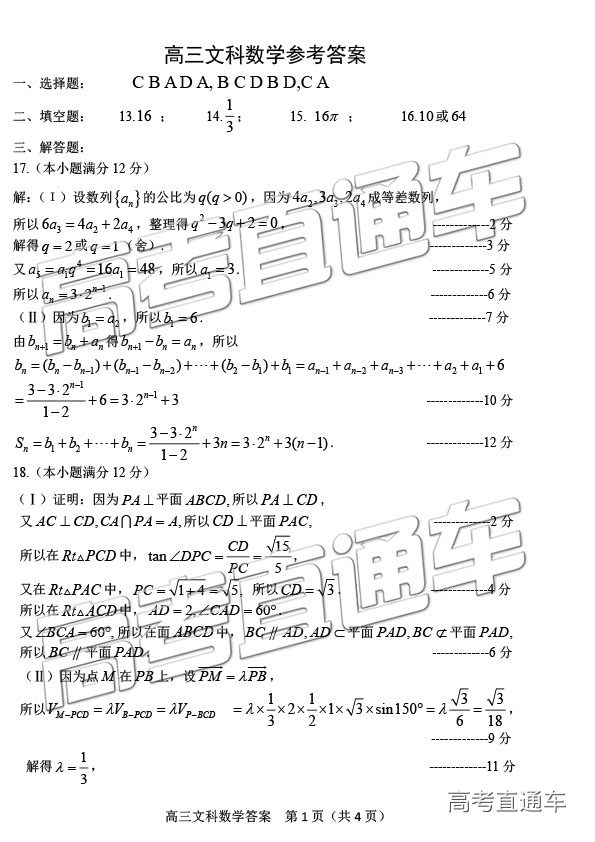 高三文科数学参考答案
一、选择题： C B A D A, B C D B D,C A
二、填空题： 13.16 ； 14. 1/3； 15. 16π ； 16.10或64
三、解答题：
17.（本小题满分 12 分）
解:（Ⅰ）设数列{aₙ}的公比为q(q > 0)，因为4a₂,3a₃,2a₄成等差数列，
所以6a₃ = 4a₂ + 2a₄，整理得q² − 3q + 2 = 0， -------------2 分
解得q = 2或q = 1（舍）. -------------3 分
又a₅ = a₁q⁴ = 16a₁ = 48，所以a₁ = 3. -------------5 分
所以aₙ = 3·2ⁿ⁻¹. -------------6 分
（Ⅱ）因为b₁ = a₂，所以b₁ = 6. -------------7 分
由bₙ₊₁ = bₙ + aₙ得bₙ₊₁ − bₙ = aₙ，所以
bₙ = (bₙ − bₙ₋₁) + (bₙ₋₁ − bₙ₋₂) + ⋯ + (b₂ − b₁) + b₁ = aₙ₋₁ + aₙ₋₂ + aₙ₋₃ + ⋯ + a₂ + a₁ + 6
= (3 − 3·2ⁿ⁻¹)/(1 − 2) + 6 = 3·2ⁿ⁻¹ + 3 -------------10 分
Sₙ = b₁ + b₂ + ⋯ + bₙ = (3 − 3·2ⁿ)/(1 − 2) + 3n = 3·2ⁿ + 3(n − 1). -------------12 分
18.（本小题满分 12 分）
（Ⅰ）证明：因为PA ⊥ 平面ABCD,所以PA ⊥ CD，
又AC ⊥ CD,CA∩PA = A,所以CD ⊥ 平面PAC, -------------2 分
所以在Rt△PCD中，tan∠DPC = CD/PC = √15/5，
又在Rt△PAC中，PC = √(1+4) = √5, 所以CD = √3. -------------4 分
所以在Rt△ACD中，AD = 2,∠CAD = 60°.
又∠BCA = 60°,所以在面ABCD中，BC∥AD,AD ⊂ 平面PAD,BC ⊄ 平面PAD,
所以BC∥平面PAD. -------------6 分
（Ⅱ）因为点M在PB上，设PM = λPB，
所以V_{M−PCD} = λV_{B−PCD} = λV_{P−BCD} = λ × 1/3 × 2 × 1/2 × 1 × √3 × sin150° = λ √3/6 = √3/18，
-------------9 分
解得λ = 1/3， -------------11 分
高三文科数学答案 第 1 页（共 4 页）
高考直通车
高考直通车